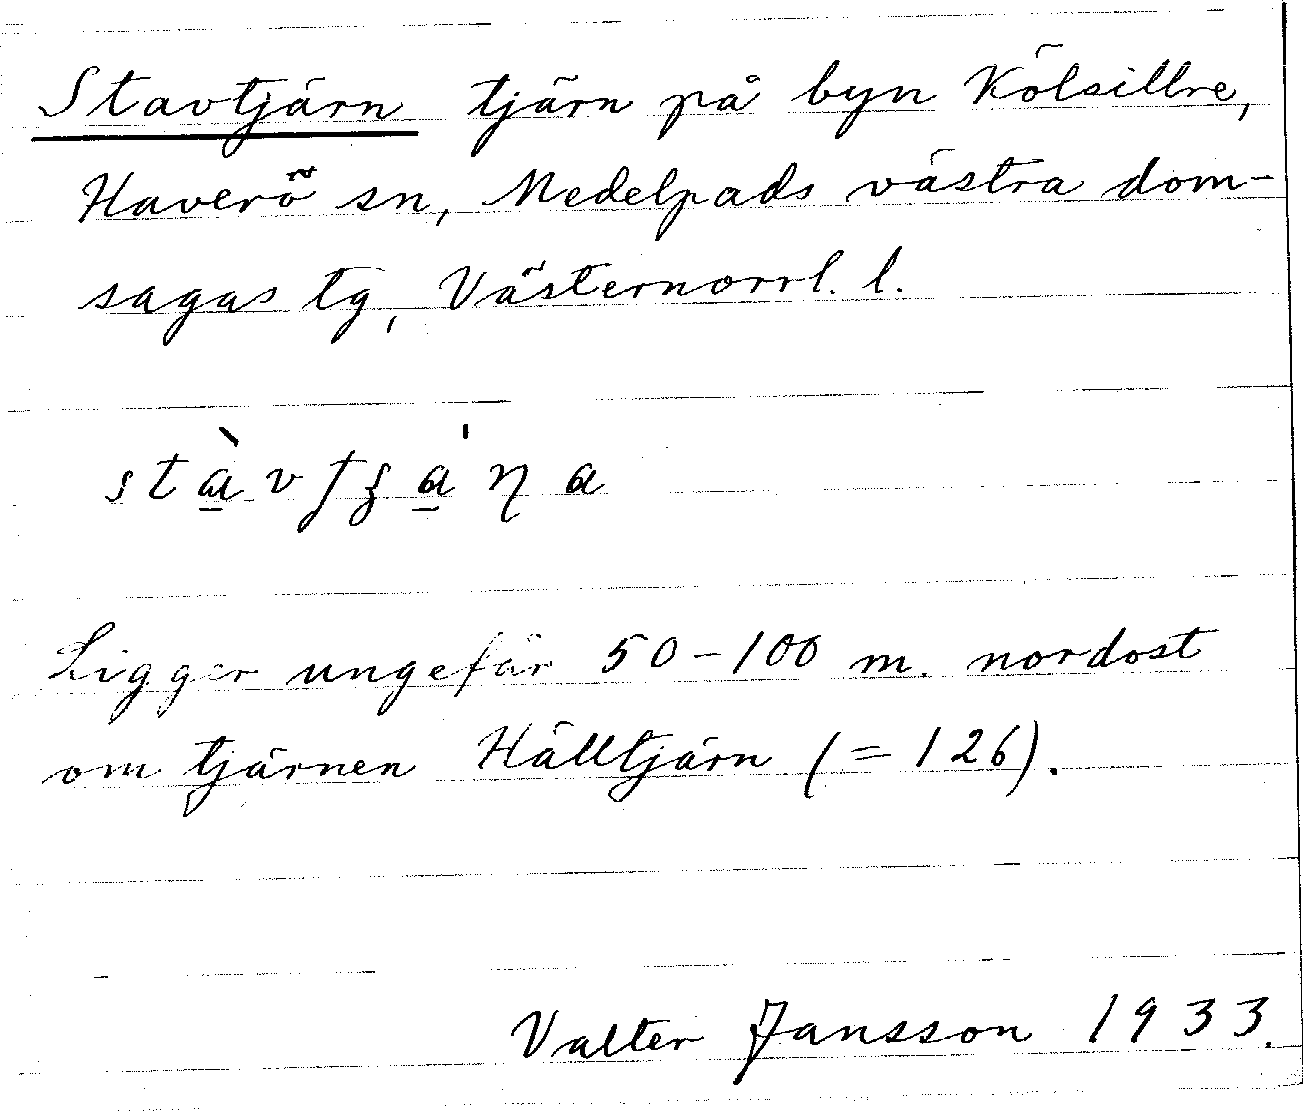 Stavtjärn tjärn på byn Kölsillre,
Haverö sn, Medelpads västra dom-
sagas tg, Västernorrl. l.
Ligger ungefär 50-100 m. nordost
om tjärnen Hälltjärn (=126).
Valter Jansson 1933.